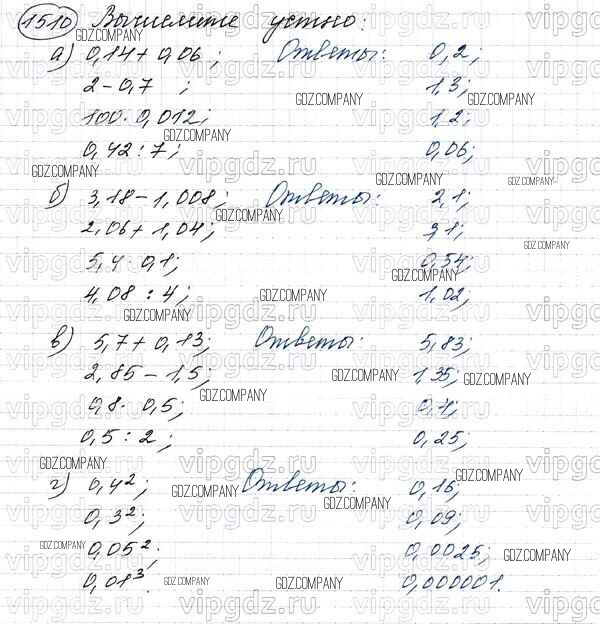 1510 Вычислите устно:
а) 0,14 + 0,06; Ответы: 0,2;
2 - 0,7; 1,3;
100 · 0,012; 1,2;
0,42 : 7; 0,06;
б) 3,18 - 1,008; Ответы: 2,1;
2,06 + 1,04; 3,1;
5,4 · 0,1; 0,54;
4,08 : 4; 1,02;
в) 5,7 + 0,13; Ответы: 5,83;
2,85 - 1,5; 1,35;
0,8 · 0,5; 0,4;
0,5 : 2; 0,25;
г) 0,4²; Ответы: 0,16;
0,3²; 0,09;
0,05²; 0,0025;
0,01³. 0,000001.
GDZ.COMPANY
vipgdz.ru